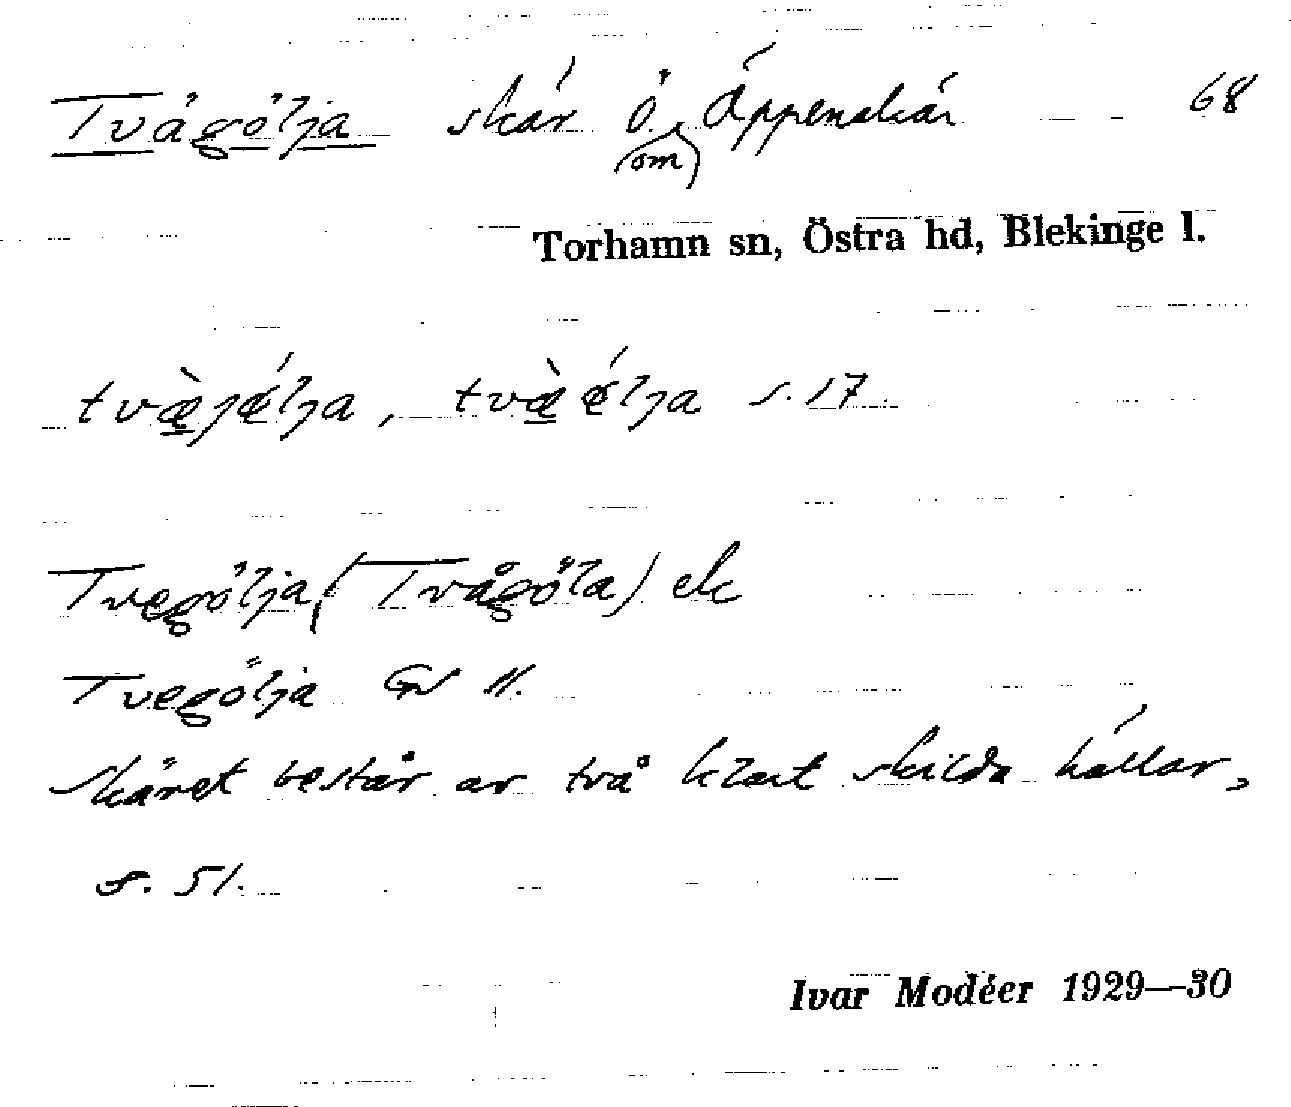 Tvågölja skär Ö. (om) Äppenskär 68
Torhamn sn, Östra hd, Blekinge l.
tvæ̀jǽlja, tvæ̀ǽlja s. 17.
Tvegölja, (Tvågöla) ek
Tvegölja GV 11.
Skäret består av två klart skilda hällar,
s. 51.
Ivar Modéer 1929—30